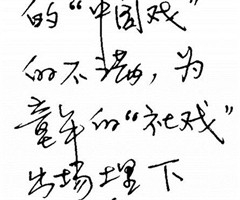 的“中国戏”
的不堪，为
童年的“社戏”
出场埋下